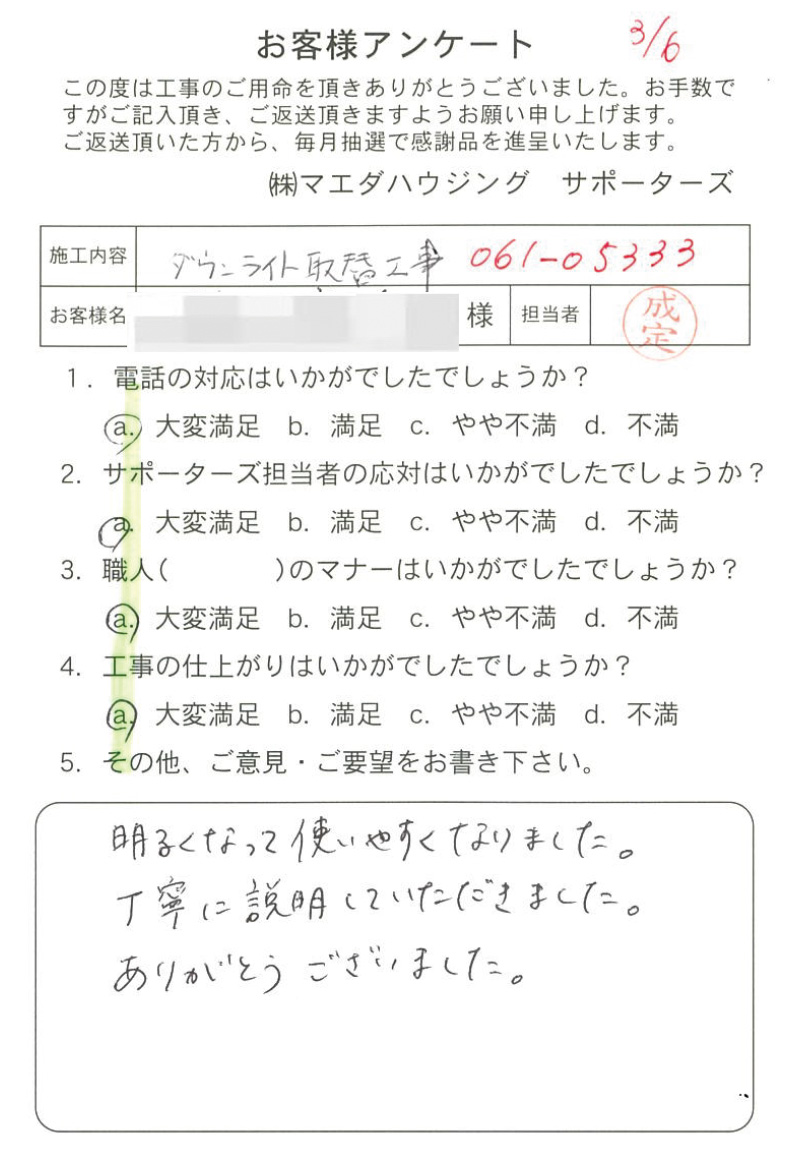 お客様アンケート 3/6
この度は工事のご用命を頂きありがとうございました。お手数で
すがご記入頂き、ご返送頂きますようお願い申し上げます。
ご返送頂いた方から、毎月抽選で感謝品を進呈いたします。
㈱マエダハウジング サポーターズ
施工内容 ダウンライト取替工事 061-05333
お客様名 様 担当者 成定
1. 電話の対応はいかがでしたでしょうか？
a. 大変満足 b. 満足 c. やや不満 d. 不満
2. サポーターズ担当者の応対はいかがでしたでしょうか？
a. 大変満足 b. 満足 c. やや不満 d. 不満
3. 職人( )のマナーはいかがでしたでしょうか？
a. 大変満足 b. 満足 c. やや不満 d. 不満
4. 工事の仕上がりはいかがでしたでしょうか？
a. 大変満足 b. 満足 c. やや不満 d. 不満
5. その他、ご意見・ご要望をお書き下さい。
明るくなって使いやすくなりました。
丁寧に説明していただきました。
ありがとうございました。